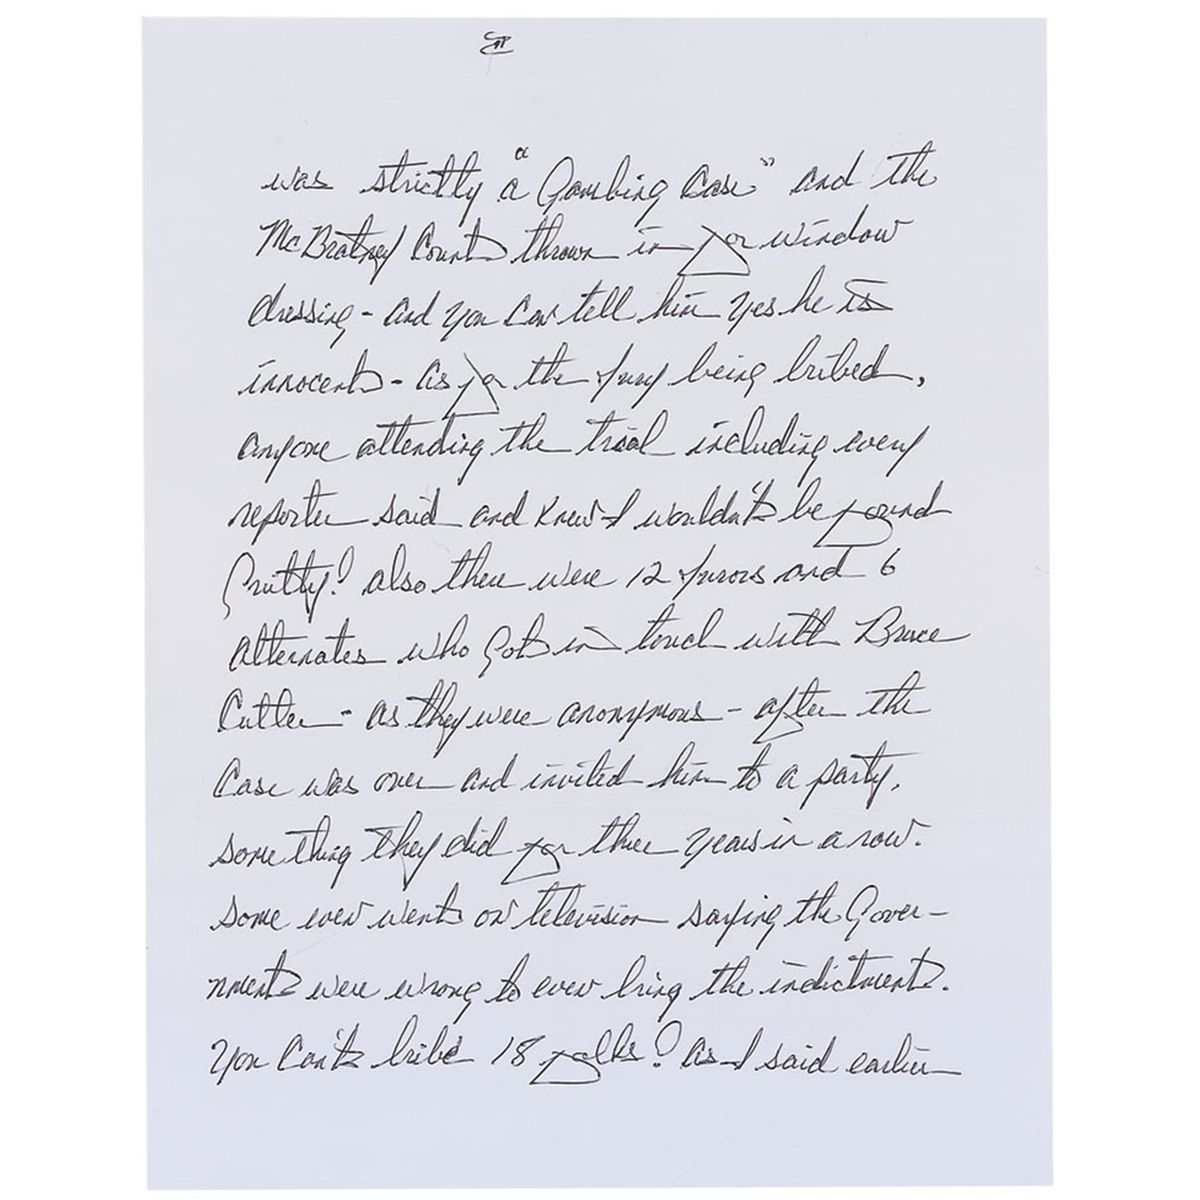 was strictly "a "Gambing Case" and the
McBratney Count thrown in for window
dressing - and you can tell him yes he is
innocent - as for the jury being bribed,
anyone attending the trial including every
reporter said and knew I wouldn't be found
Guilty? also there were 12 jurors and 6
alternates who got in touch with Bruce
Cutler - as they were anonymous - after the
Case was over and invited him to a party,
something they did for three years in a row.
Some even went on television saying the Gover-
nment were wrong to ever bring the indictment.
You Can't bribe 18 folks? as I said earlier